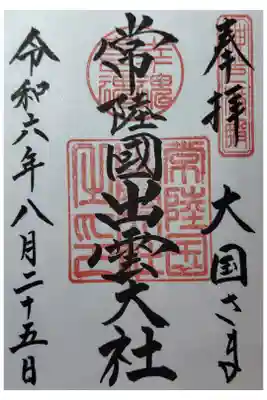 奉拝
大国さま
常陸國出雲大社
令和六年八月二十五日